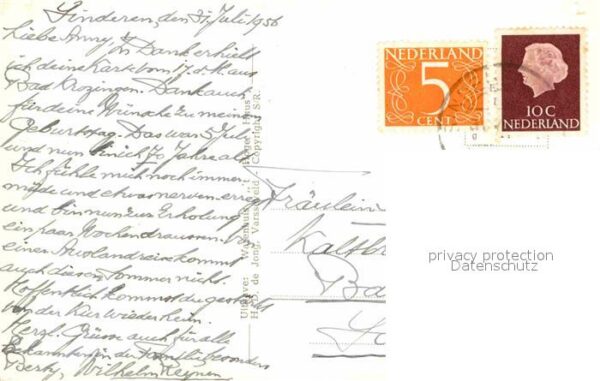 Sinderen den 31 Juli 1956
Liebe Anny, In Dank erhielt
ich deine Karte vom 17. d. M. aus
Bad Krozingen. Dank auch
für deine Wünsche zu meinem
Geburtstag. Das war 5 Juli
und nun bin ich 70 Jahre alt.
Ich fühle mich noch immer
müde und etwas nerven erregt
und bin nun zur Erholung
ein paar Wochen draussen. Von
einer Auslandreise kommt
auch diesen Sommer nichts.
Hoffentlich kommst du gestärkt
von der Kur wieder heim.
Herzl. Grüsse auch für alle
Bekannten in der Familie besonders
Berty, Wilhelm
Uitgave: Warenhuis 't Hoge Huus
H.D. de Jong, Varsseveld - Copyright S.R.
NEDERLAND
5
CENT
10 C
NEDERLAND
Fräulein
Ba
privacy protection
Datenschutz